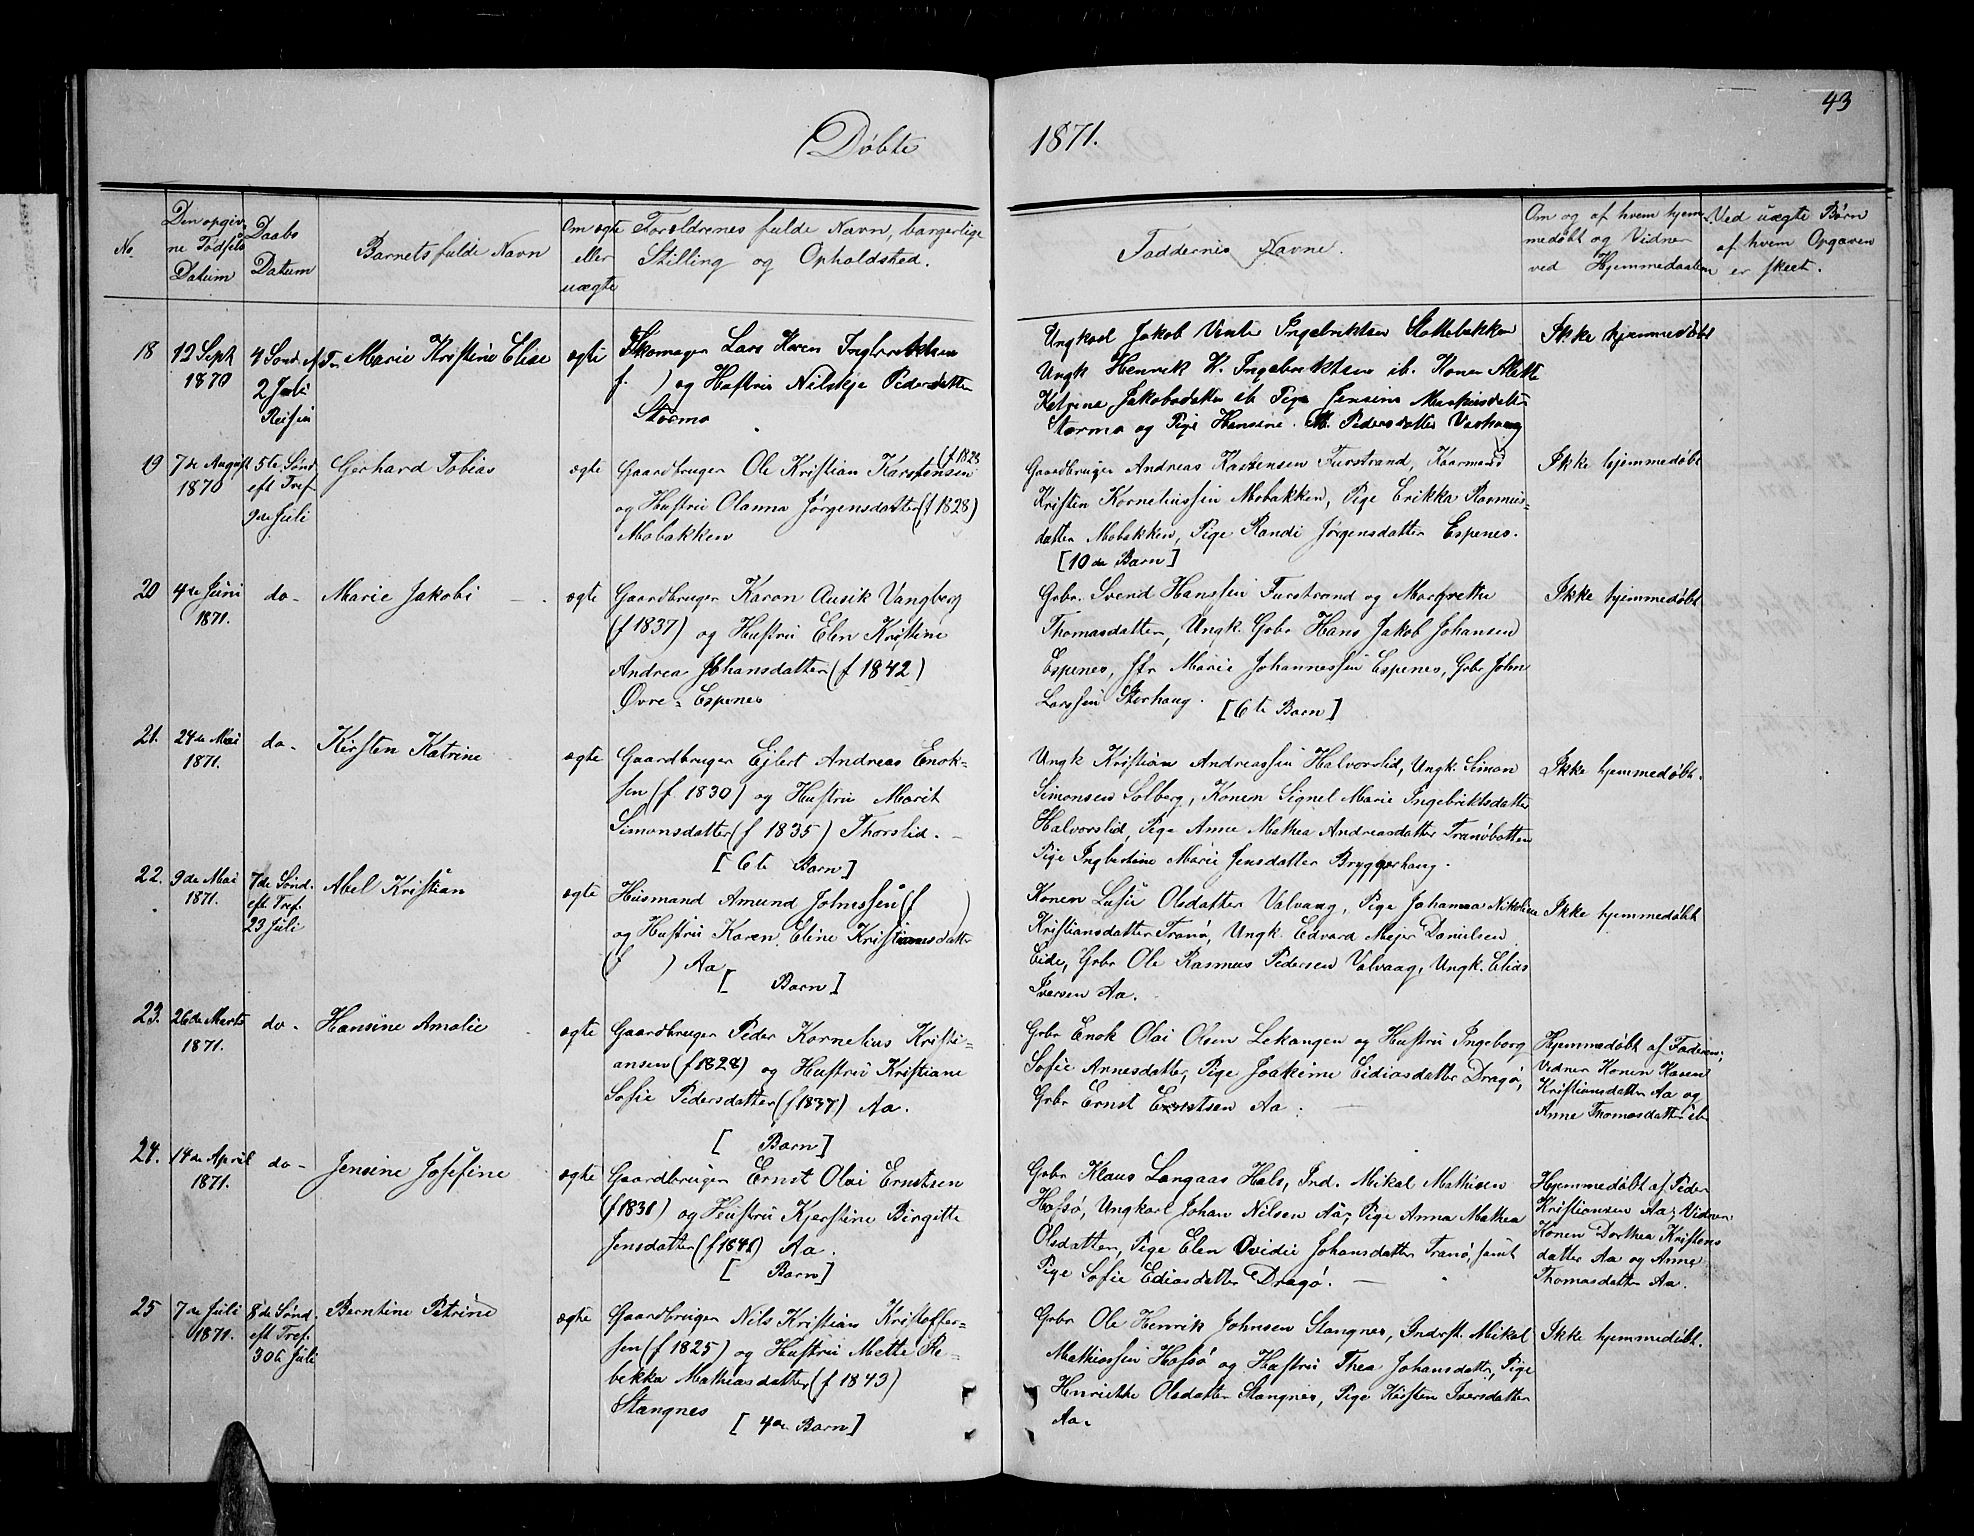 43
Døbte 1871.
No.
Den opgiv-
ne Fødsels
Datum
Daabs
Datum
Barnets fulde Navn
Om ægte
eller
uægte
Forældrenes fulde Navn, borgerlige
Stilling og Opholdsted.
Faddernes Navne.
Om og af hvem hjem-
medøbt og Vidner
ved Hjemmedaaben
Ved uægte Børn
af hvem Opgaven
er skeet.
18
12 Sept
1870
4 Sønd. e. Tr.
2 Juli
Marie Kristine Elise
ægte
Skomager Lars Karen Ingebriktsen
f. ) og Hustru Nilskja Pedersdatter
Stormo
Ungkarl Jakob Vinte Ingebriktsen Slottebakken
Ungk Henrik K. Ingebriktsen ib. Konen Alette
Katrina Jakobsdatter ib Pige Jensine Markusdatter
Stormo og Pige Hansine M. Pedersdatter Varhaug
Ikke hjemmedøbt
19
7de August
1870
5te Sønd
eft Tref
9de Juli
Gerhard Tobias
ægte
Gaardbruger Ole Kristian Karstensen (f 1828
og Hustru Olanna Jørgensdatter (f 1828)
Mobakken
Gaardbruger Andreas Karstensen Furstrand, Kaarmand
Kristen Korneliussen Mobakken, Pige Erikka Rasmus-
datter Mobakken, Pige Randi Jørgensdatter Espenes.
[10de Barn]
Ikke hjemmedøbt
20
4de Juni
1871.
do-
Marie Jakobi
ægte
Gaardbruger Karon Ausik Vangberg
(f 1837) og Hustru Elen Kristine
Andrea Johansdatter (f 1842)
Øvre-Espenes
Gbr. Svend Hanssen Furstrand og Margrethe
Thomasdatter, Ungk. Gbr Hans Jakob Johansen
Espenes, Marie Johannessen Espenes, Gbr John
Larssen Storhaug.
[6te Barn]
Ikke hjemmedøbt
21.
24de Mai
1871.
do-
Kirsten Katrine
ægte
Gaardbruger Ejlert Andreas Enok-
sen (f. 1830) og Hustru Marit
Simonsdatter (f 1835) Thorslid.
[6te Barn]
Ungk Kristian Andreassen Halvorslid, Ungk. Simon
Simonsen Solberg, Konen Signel Marie Ingebriktsdatter
Halvorslid, Pige Anne Mathea Andreasdatter Tranøbotten
Pige Ingbertine Marie Jensdatter Bryggerhaug.
Ikke hjemmedøbt.
22.
9de Mai
1871.
7de Sønd.
eft Tref.
23 Juli
Abel Kristian
ægte
Husmand Amund Johnssen (f )
og Hustru Karen Eline Kristiansdatter
(f ) Aa
[ Barn]
Konen Lusie Olsdatter Valvaag, Pige Johanna Nikoline
Kristiansdatter Tranø, Ungk. Edvard Mejer Danielsen
Eide, Gbr Ole Rasmus Pedersen Valvaag, Ungk. Elias
Iversen Aa.
Ikke hjemmedøbt
23.
26de Marts
1871.
do-
Hansine Amalie
ægte
Gaardbruger Peder Kornelius Kristi-
ansen (f 1828) og Hustru Kristiane
Sofie Pedersdatter (f 1837) Aa.
[ Barn]
Gbr Enok Olai Olsen Lekangen og Hustru Ingeborg
Sofie Arnesdatter, Pige Joakime Eidiasdatter Dragø,
Gbr Ernst Ernstsen Aa.
Hjemmedøbt af Faderen;
Vidner Konen Karen
Kristiansdatter Aa og
Anne Thomasdatter ib
24.
14de April
1871.
do-
Jensine Josefine
ægte
Gaardbruger Ernst Olai Ernstsen
(f 1831) og Hustru Kjerstine Birgitte
Jensdatter (f 1841) Aa.
[ Barn]
Gbr Klaus Langaas Hals, Ind. Mikal Mathisen
Hofsø, Ungkarl Johan Nilsen Aa, Pige Anna Mathea
Olsdatter, Pige Elen Ovidie Johansdatter Tranø, samt
Pige Sofie Ediasdatter Dragø.
Hjemmedøbt af Peder
Kristiansen Aa; Vidner
Konen Dorthea Kristens
datter Aa og Anne
Thomasdatter Aa.
25
7de Juli
1871.
8de Sønd.
eft Tref.
30te Juli
Berntine Petrine
ægte
Gaardbruger Nils Kristian Kristoffer-
sen (f 1825) og Hustru Mette Re-
bekka Mathiasdatter (f 1843)
Stangnes
[4de Barn]
Gbr Ole Henrik Johnsen Stangnes, Inderst. Mikal
Mathiassen Hofsø og Hustru Thea Johansdatter, Pige
Henriette Olsdatter Stangnes, Pige Kirsten Iversdatter
Aa.
Ikke hjemmedøbt.